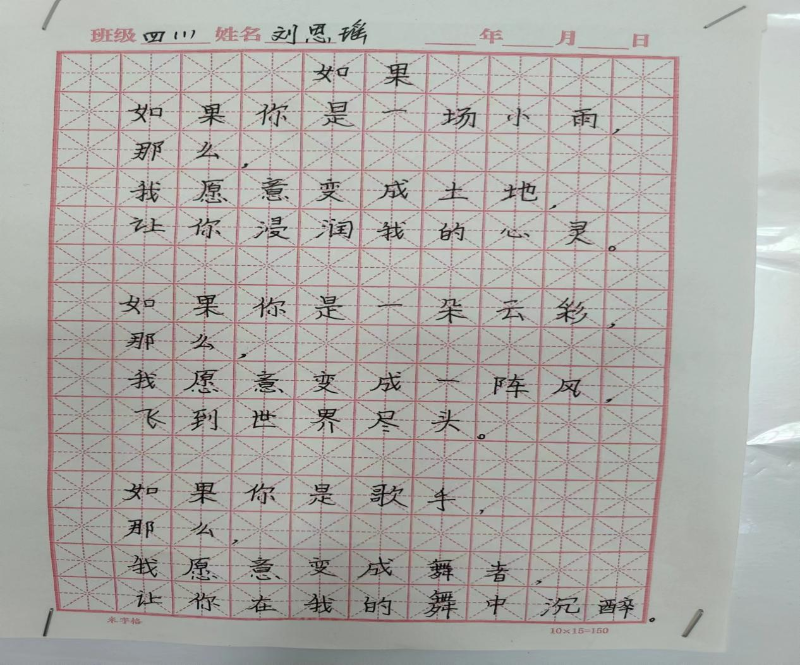 班级 四(1) 姓名 刘思瑶 年 月 日
如果
如果你是一场小雨,
那么,
我愿意变成土地,
让你浸润我的心灵。
如果你是一朵云彩,
那么,
我愿意变成一阵风,
飞到世界尽头。
如果你是歌手,
那么,
我愿意变成舞者,
让你在我的舞中沉醉。
米字格 10×15=150